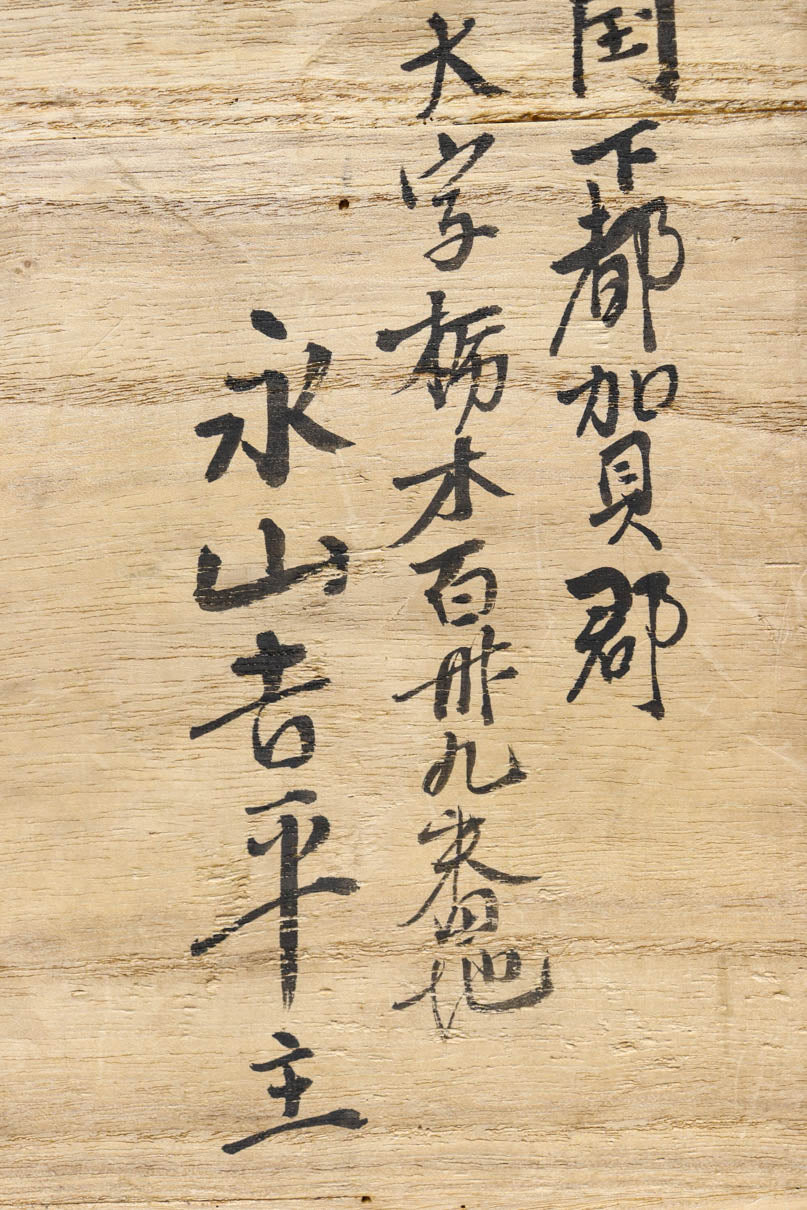 国下都加賀郡
大字栃木百卌九番地
永山吉平主